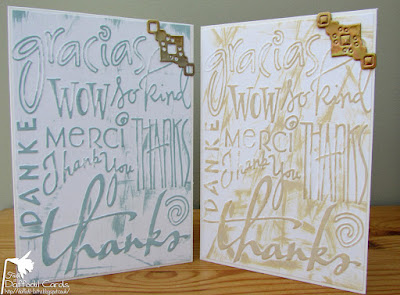 gracias
WOW so kind
DANKE
MERCI
Thank You
THANKS
thanks
gracias
WOW so kind
DANKE
MERCI
Thank You
THANKS
thanks
Daffodil Cards